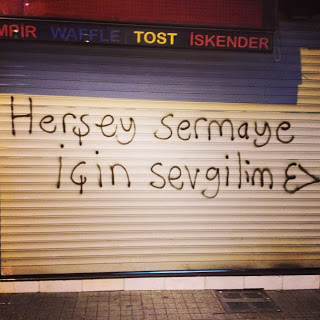 MPİR WAFFLE TOST İSKENDER
Herşey sermaye
için sevgilim <3